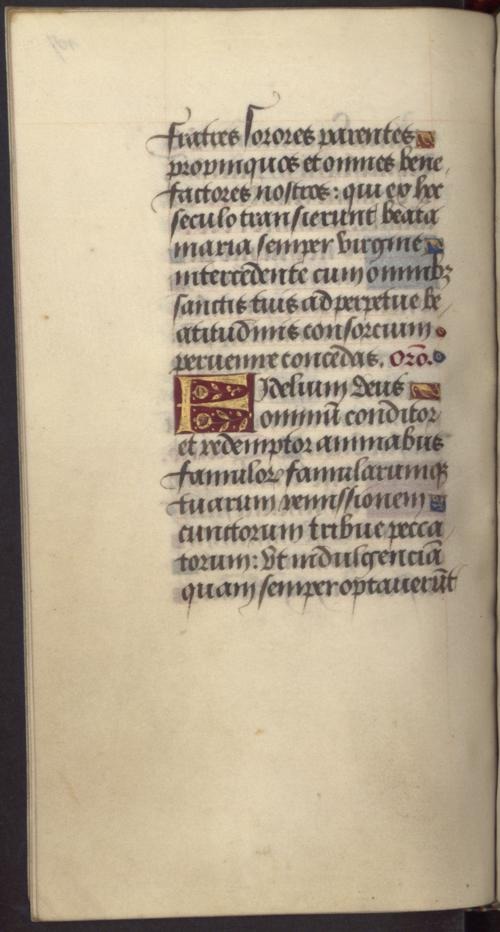 fratres sorores parentes
propinquos et omnes bene
factores nostros: qui ex hoc
seculo transierunt beata
maria semper virgine
intercedente cum omnibꝫ
sanctis tuis ad perpetue be
atitudinis consorcium
peruenire concedas. Orõ.
Fidelium deus
omniũ conditor
et redemptor animabus
famuloꝝ famularumqꝫ
tuarum remissionem
cunctorum tribue pecca
torum: Vt indulgenciã
quam semper optauerũt